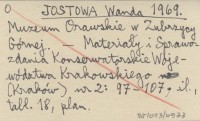 O JOSTOWA Wanda 1969.
Muzeum Orawskie w Zubrzycy
Górnej. — Materiały i Sprawo-
zdania Konserwatorskie Woje-
wództwa Krakowskiego
(Kraków) nr 2: 97-107, il.,
tabl. 18, plan.